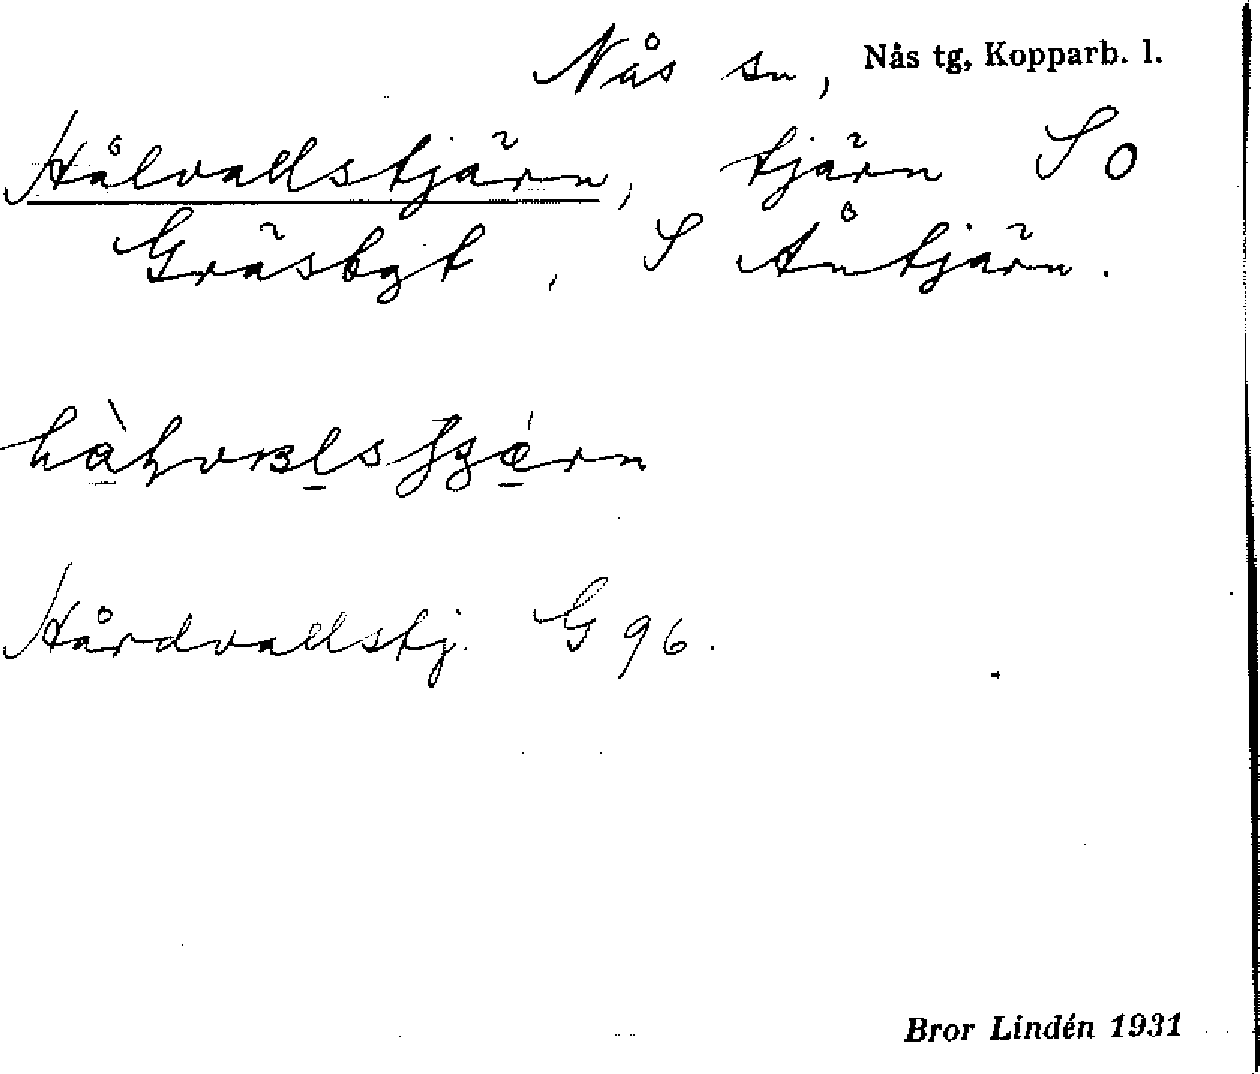 Nås sn, Nås tg, Kopparb. l.
Hålvallstjärn, tjärn SO
Gräsbgt, S Åntjärn.
Hårdvallstj. G 96.
Bror Lindén 1931